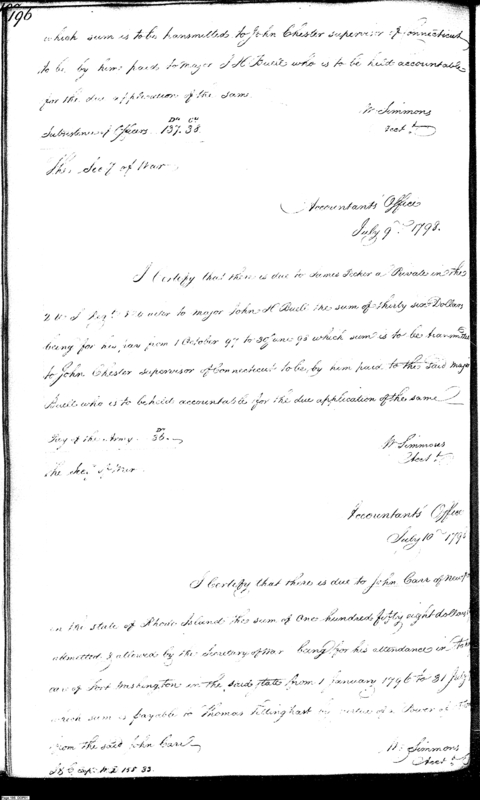 196
which sum is to be transmitted to John Chester supervisor of Connecticut
to be by him paid to Major J H Buell who is to be held accountable
for the due application of the same
W Simmons
Acct
Subsistence of Officers 137.38
The Secy of War
Accountants Office
July 9th 1798.
I Certify that there is due to James a Private in the
2 U S Regt under to major John H Buell the sum of thirty six Dollars
being for his pay from 1 October 97 to 30 June 98 which sum is to be transmitted
to John Chester supervisor of Connecticut to be by him paid to the said major
Buell who is to be held accountable for the due application of the same
Pay of the Army 36.
The Secy of War
W Simmons
Acct
Accountants Office
July 10th 179
I Certify that there is due to John Carr of
in the state of Rhode Island the sum of One hundred fifty eight dollars
admitted & allowed by the Secretary of War being for his attendance in
care of Fort Washington in the said state from 1 January 1796 to 31 July
which sum is payable to Thomas Tillinghast by virtue of a Power of
from the said John Carr
W Simmons
Acct
158 33